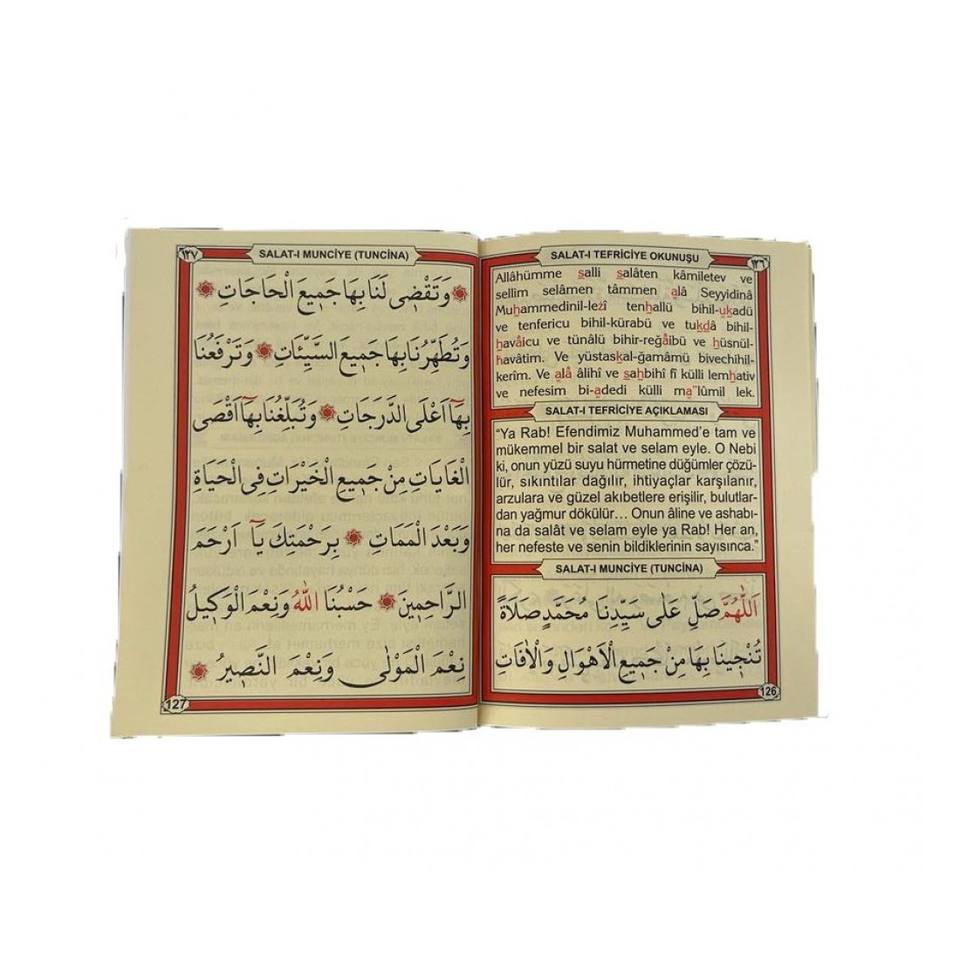 SALAT-I TEFRİCİYE OKUNUŞU
١٢٦
Allâhümme salli salâten kâmiletev ve
sellim selâmen tâmmen alâ Seyyidinâ
Muhammedinil-lezî tenhallü bihil-ukadü
ve tenfericu bihil-kürabü ve tukdâ bihil-
havâicu ve tünâlü bihir-reğâibü ve hüsnül-
havâtim. Ve yüstaskal-ğamâmü bivechihil-
kerîm. Ve alâ âlihî ve sahbihî fî külli lemhativ
ve nefesim bi-adedi külli ma'lûmil lek.
SALAT-I TEFRİCİYE AÇIKLAMASI
“Ya Rab! Efendimiz Muhammed’e tam ve
mükemmel bir salat ve selam eyle. O Nebi
ki, onun yüzü suyu hürmetine düğümler çözü-
lür, sıkıntılar dağılır, ihtiyaçlar karşılanır,
arzulara ve güzel akıbetlere erişilir, bulutlar-
dan yağmur dökülür… Onun âline ve ashabı-
na da salât ve selam eyle ya Rab! Her an,
her nefeste ve senin bildiklerinin sayısınca.”
SALAT-I MUNCİYE (TUNCİNA)
اَللّٰهُمَّ صَلِّ عَلٰى سَيِّدِنَا مُحَمَّدٍ صَلَاةً
تُنْجِينَا بِهَا مِنْ جَمِيعِ الْاَهْوَالِ وَالْاٰفَاتِ
126
SALAT-I MUNCİYE (TUNCİNA)
١٢٧
وَتَقْضِى لَنَا بِهَا جَمِيعَ الْحَاجَاتِ
وَتُطَهِّرُنَا بِهَا جَمِيعَ السَّيِّئَاتِ وَتَرْفَعُنَا
بِهَٓا اَعْلَى الدَّرَجَاتِ وَتُبَلِّغُنَا بِهَٓا اَقْصَى
الْغَايَاتِ مِنْ جَمِيعِ الْخَيْرَاتِ فِى الْحَيَاةِ
وَبَعْدَ الْمَمَاتِ بِرَحْمَتِكَ يَٓا اَرْحَمَ
الرَّاحِمِينَ حَسْبُنَا اللّٰهُ وَنِعْمَ الْوَكِيلُ
نِعْمَ الْمَوْلٰى وَنِعْمَ النَّصِيرُ
127